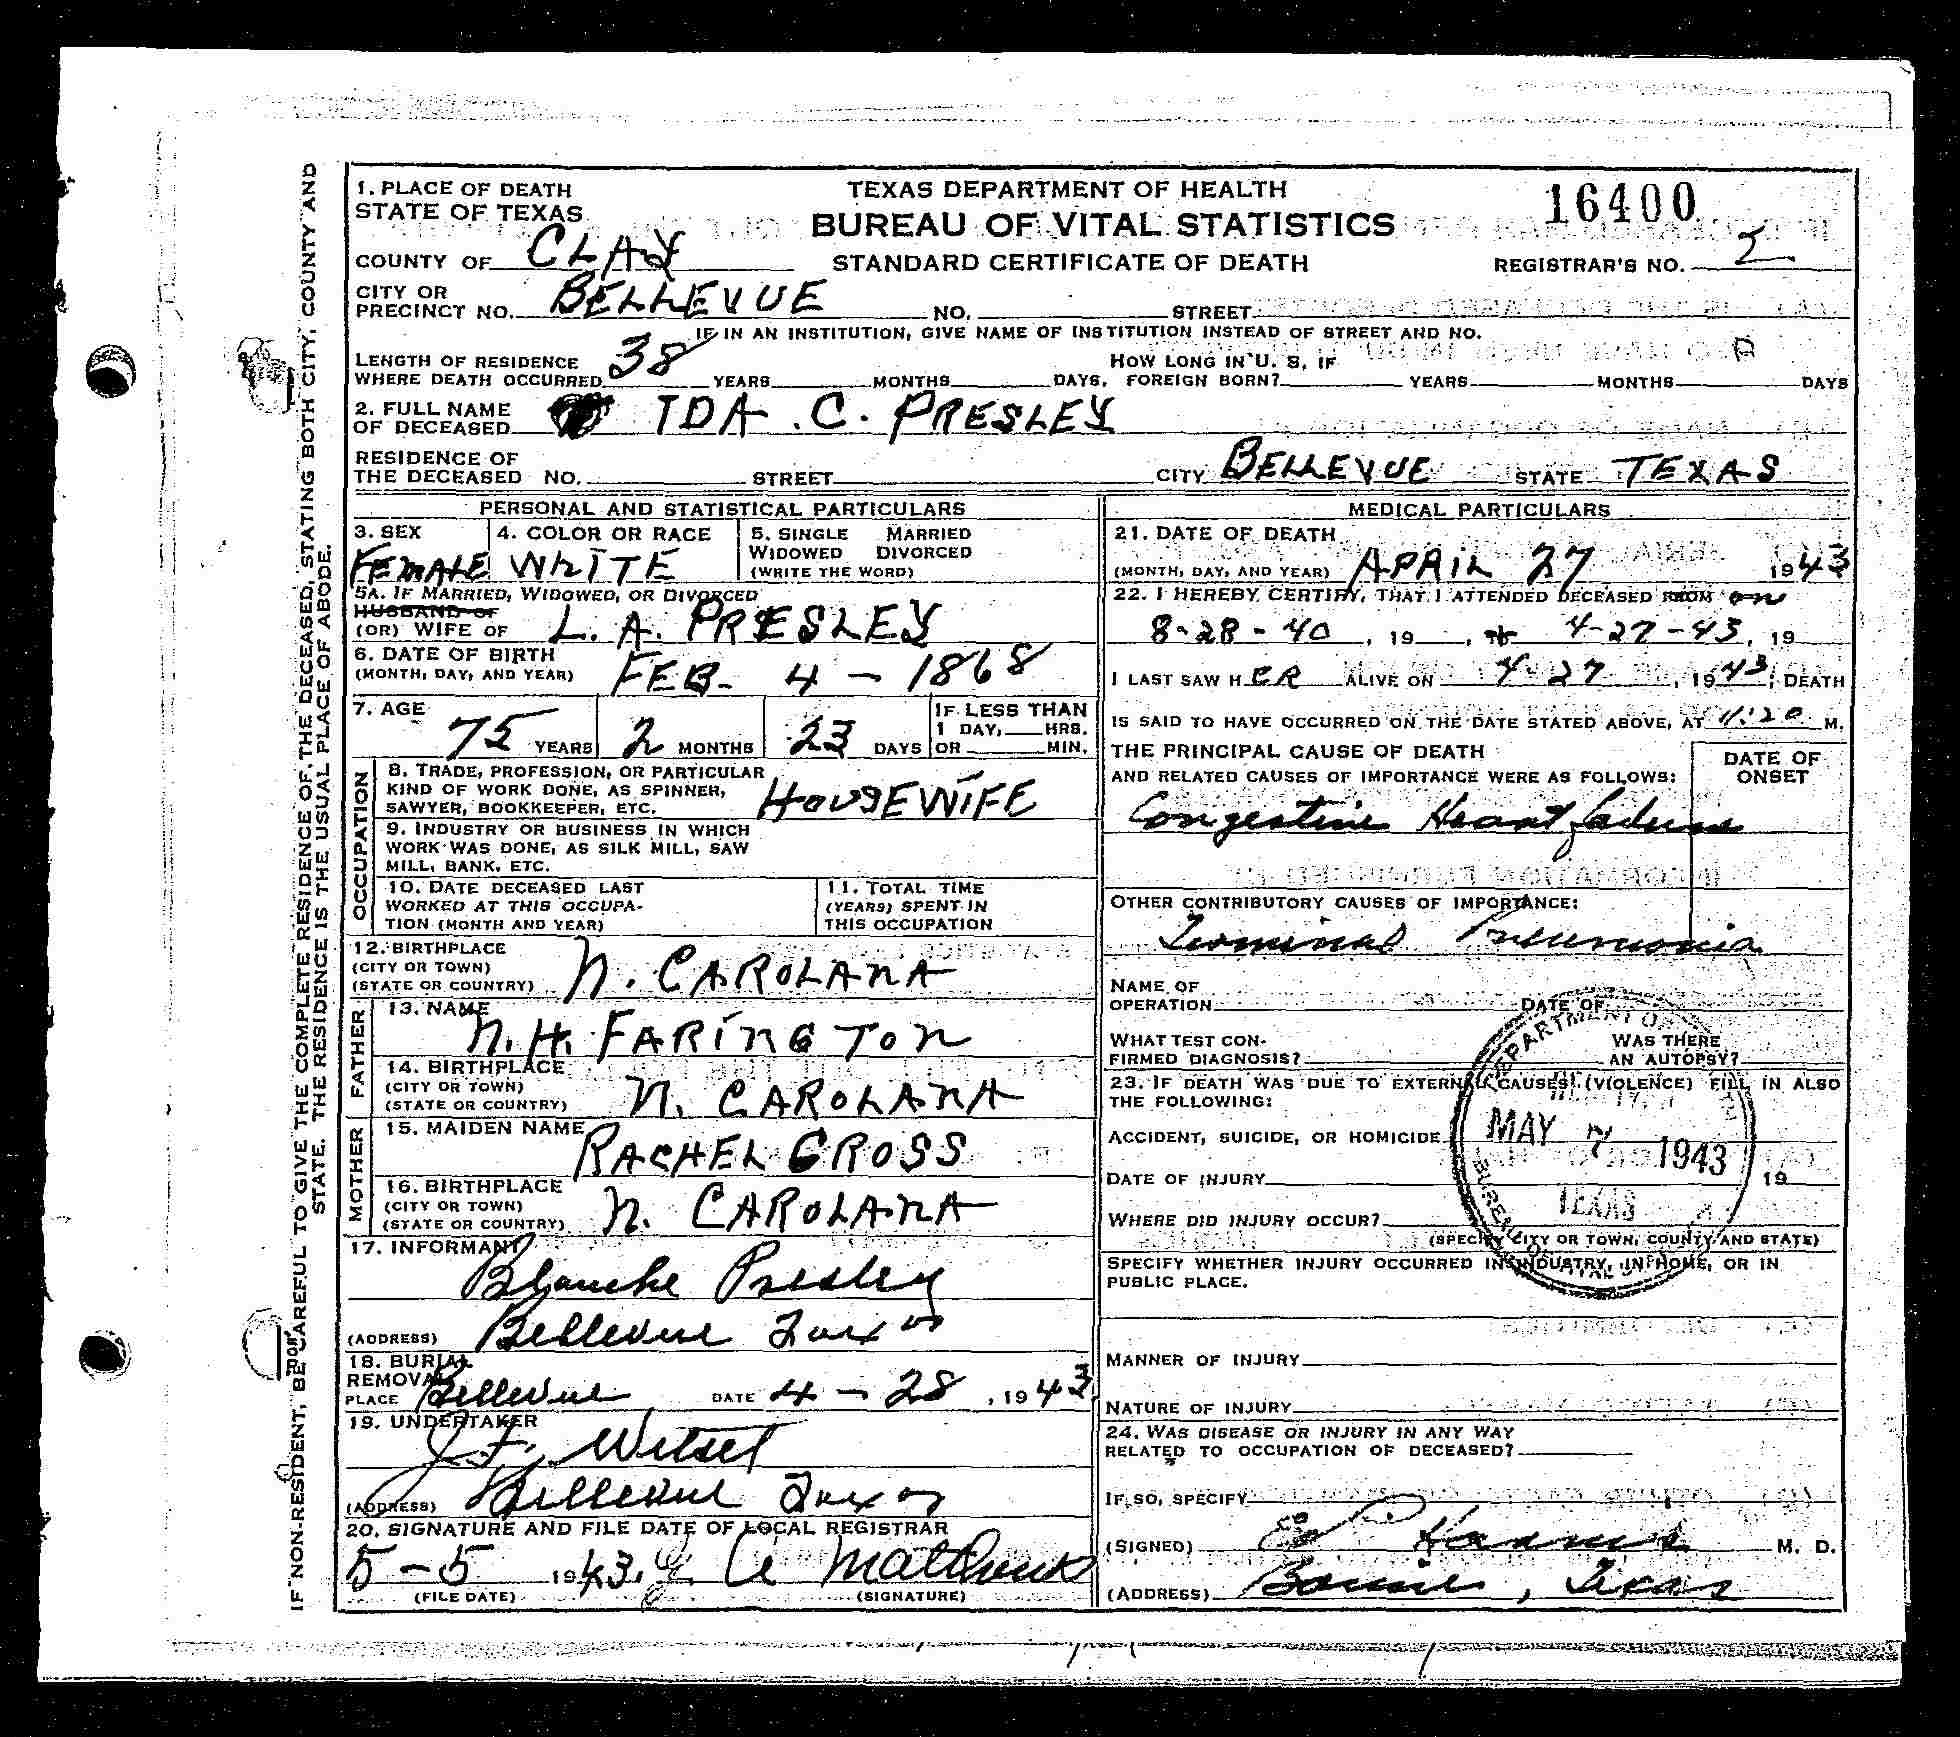 1. PLACE OF DEATH
STATE OF TEXAS
TEXAS DEPARTMENT OF HEALTH
BUREAU OF VITAL STATISTICS
STANDARD CERTIFICATE OF DEATH
16400
REGISTRAR'S NO. 2
COUNTY OF CLAY
CITY OR
PRECINCT NO. BELLEVUE NO. STREET
IF IN AN INSTITUTION, GIVE NAME OF INSTITUTION INSTEAD OF STREET AND NO.
LENGTH OF RESIDENCE
WHERE DEATH OCCURRED 38 YEARS MONTHS DAYS.
HOW LONG IN U. S. IF
FOREIGN BORN? YEARS MONTHS DAYS
2. FULL NAME
OF DECEASED IDA . C. PRESLEY
RESIDENCE OF
THE DECEASED NO. STREET CITY BELLEVUE STATE TEXAS
PERSONAL AND STATISTICAL PARTICULARS
3. SEX
FEMALE
4. COLOR OR RACE
WHITE
5. SINGLE MARRIED
WIDOWED DIVORCED
(WRITE THE WORD)
5A. IF MARRIED, WIDOWED, OR DIVORCED
HUSBAND OF
(OR) WIFE OF L. A. PRESLEY
6. DATE OF BIRTH
(MONTH, DAY, AND YEAR) FEB. 4 - 1868
7. AGE
75 YEARS 2 MONTHS 23 DAYS
IF LESS THAN
1 DAY, HRS.
OR MIN.
OCCUPATION
8. TRADE, PROFESSION, OR PARTICULAR
KIND OF WORK DONE, AS SPINNER,
SAWYER, BOOKKEEPER, ETC. HOUSEWIFE
9. INDUSTRY OR BUSINESS IN WHICH
WORK WAS DONE, AS SILK MILL, SAW
MILL, BANK, ETC.
10. DATE DECEASED LAST
WORKED AT THIS OCCUPA-
TION (MONTH AND YEAR)
11. TOTAL TIME
(YEARS) SPENT IN
THIS OCCUPATION
12. BIRTHPLACE
(CITY OR TOWN)
(STATE OR COUNTRY) N. CAROLANA
FATHER
13. NAME
N. H. FARINGTON
14. BIRTHPLACE
(CITY OR TOWN)
(STATE OR COUNTRY) N. CAROLANA
MOTHER
15. MAIDEN NAME
RACHEL CROSS
16. BIRTHPLACE
(CITY OR TOWN)
(STATE OR COUNTRY) N. CAROLANA
17. INFORMANT
Blanche Presley
(ADDRESS) Bellevue Texas
18. BURIAL
REMOVAL
PLACE Bellevue DATE 4 - 28, 1943
19. UNDERTAKER
J. F. Wetsel
(ADDRESS) Bellevue Texas
20. SIGNATURE AND FILE DATE OF LOCAL REGISTRAR
5 - 5 1943. Matthews
(FILE DATE) (SIGNATURE)
MEDICAL PARTICULARS
21. DATE OF DEATH
(MONTH, DAY, AND YEAR) APRIL 27 1943
22. I HEREBY CERTIFY, THAT I ATTENDED DECEASED FROM on
8-28-40, 19 , to 4-27-43, 19
I LAST SAW HER ALIVE ON 4-27, 1943; DEATH
IS SAID TO HAVE OCCURRED ON THE DATE STATED ABOVE, AT 11:20 M.
THE PRINCIPAL CAUSE OF DEATH
AND RELATED CAUSES OF IMPORTANCE WERE AS FOLLOWS:
DATE OF
ONSET
Congestive Heart failure
OTHER CONTRIBUTORY CAUSES OF IMPORTANCE:
Terminal Pneumonia
NAME OF
OPERATION DATE OF
WHAT TEST CON-
FIRMED DIAGNOSIS?
WAS THERE
AN AUTOPSY?
23. IF DEATH WAS DUE TO EXTERNAL CAUSES (VIOLENCE) FILL IN ALSO
THE FOLLOWING:
ACCIDENT, SUICIDE, OR HOMICIDE
DATE OF INJURY 19
WHERE DID INJURY OCCUR?
(SPECIFY CITY OR TOWN, COUNTY AND STATE)
SPECIFY WHETHER INJURY OCCURRED IN INDUSTRY, IN HOME, OR IN
PUBLIC PLACE.
MANNER OF INJURY
NATURE OF INJURY
24. WAS DISEASE OR INJURY IN ANY WAY
RELATED TO OCCUPATION OF DECEASED?
IF SO, SPECIFY
(SIGNED) M. D.
(ADDRESS) Bowie, Texas
DEPARTMENT OF
MAY 7 1943
TEXAS
IF NON-RESIDENT, BE CAREFUL TO GIVE THE COMPLETE RESIDENCE OF THE DECEASED, STATING BOTH CITY, COUNTY AND
STATE. THE RESIDENCE IS THE USUAL PLACE OF ABODE.